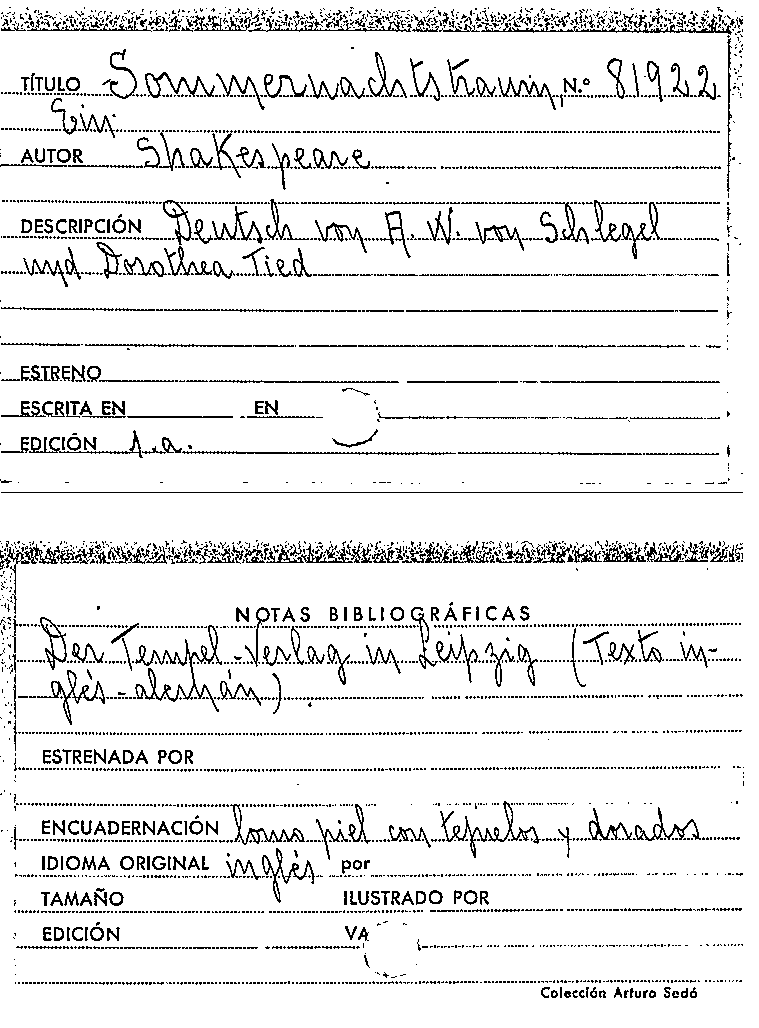 TÍTULO Sommernachtstraum, N.º 81922
Ein
AUTOR Shakespeare
DESCRIPCIÓN Deutsch von A. W. von Schlegel
und Dorothea Tied
ESTRENO
ESCRITA EN EN
EDICIÓN s.a.
NOTAS BIBLIOGRÁFICAS
Der Tempel-Verlag in Leipzig (Texto in-
glés-alemán).
ESTRENADA POR
ENCUADERNACIÓN lomo piel con tejuelos y dorados
IDIOMA ORIGINAL inglés por
TAMAÑO ILUSTRADO POR
EDICIÓN VA
Colección Arturo Sedó